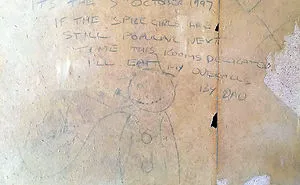 IT'S THE 5 OCTOBER 1997
IF THE SPICE GIRLS ARE
STILL POPULAR NEXT
TIME THIS ROOMS DECORATED
I'LL EAT MY OVERALLS
BY DAD